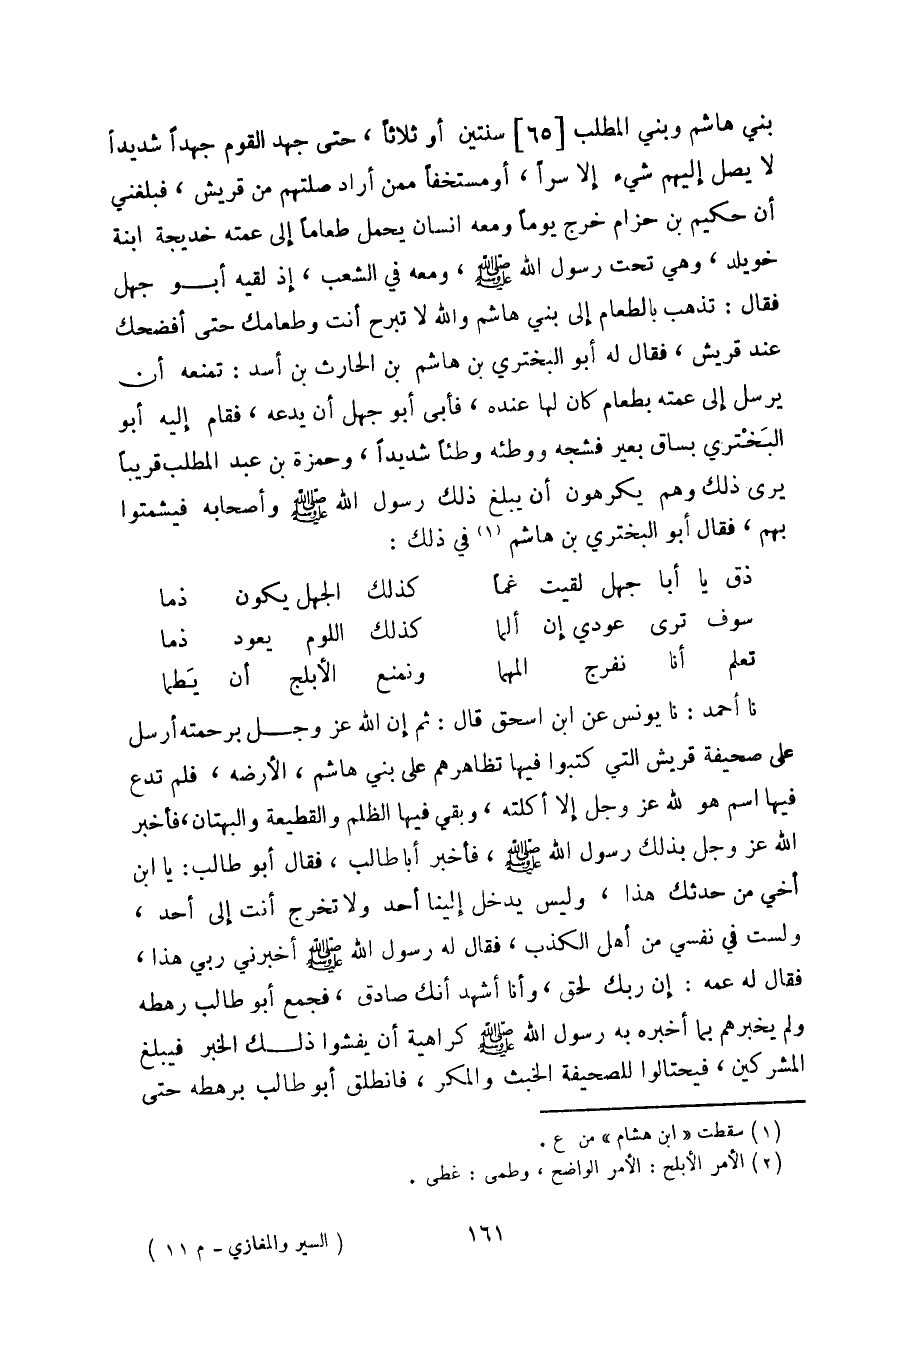 بني هاشم وبني المطلب [٦٥] سنتين أو ثلاثاً ، حتى جهد القوم جهداً شديداً
لا يصل إليهم شيء إلا سراً ، أومستخفاً ممن أراد صلتهم من قريش ، فبلغني
أن حكيم بن حزام خرج يوماً ومعه انسان يحمل طعاماً إلى عمته خديجة ابنة
خويلد ، وهي تحت رسول الله ﷺ ، ومعه في الشعب ، إذ لقيه أبــو جهل
فقال : تذهب بالطعام إلى بني هاشم والله لا تبرح أنت وطعامك حتى أفضحك
عند قريش ، فقال له أبو البختري بن هاشم بن الحارث بن أسد : تمنعه أن
يرسل إلى عمته بطعام كان لها عنده ، فأبى أبو جهل أن يدعه ، فقام إليه أبو
البَخْتري بساق بعير فشجه ووطئه وطئاً شديداً ، وحمزة بن عبد المطلب قريباً
يرى ذلك وهم يكرهون أن يبلغ ذلك رسول الله ﷺ وأصحابه فيشمتوا
بهم ، فقال أبو البختري بن هاشم (١) في ذلك :
ذق يا أبا جهل لقيت غماً كذلك الجهل يكون ذما
سوف ترى عودي إن ألما كذلك اللوم يعود ذما
تعلم أنا نفرج المهما ونمنع الأبلج أن يَطما
نا أحمد : نا يونس عن ابن اسحق قال : ثم إن الله عز وجــل برحمته أرسل
على صحيفة قريش التي كتبوا فيها تظاهرهم على بني هاشم ، الأرضه ، فلم تدع
فيها اسم هو لله عز وجل إلا أكلته ، وبقي فيها الظلم والقطيعة والبهتان، فأخبر
الله عز وجل بذلك رسول الله ﷺ ، فأخبر أبا طالب ، فقال أبو طالب: يا ابن
أخي من حدثك هذا ، وليس يدخل إلينا أحد ولا تخرج أنت إلى أحد ،
ولست في نفسي من أهل الكذب ، فقال له رسول الله ﷺ أخبرني ربي هذا ،
فقال له عمه : إن ربك لحق ، وأنا أشهد أنك صادق ، فجمع أبو طالب رهطه
ولم يخبرهم بما أخبره به رسول الله ﷺ كراهية أن يفشوا ذلــك الخبر فيبلغ
المشركين ، فيحتالوا للصحيفة الخبث والمكر ، فانطلق أبو طالب برهطه حتى
(١) سقطت « ابن هشام » من ع .
(٢) الأمر الأبلج : الأمر الواضح ، وطمى : غطى .
١٦١
( السير والمغازي - م ١١ )